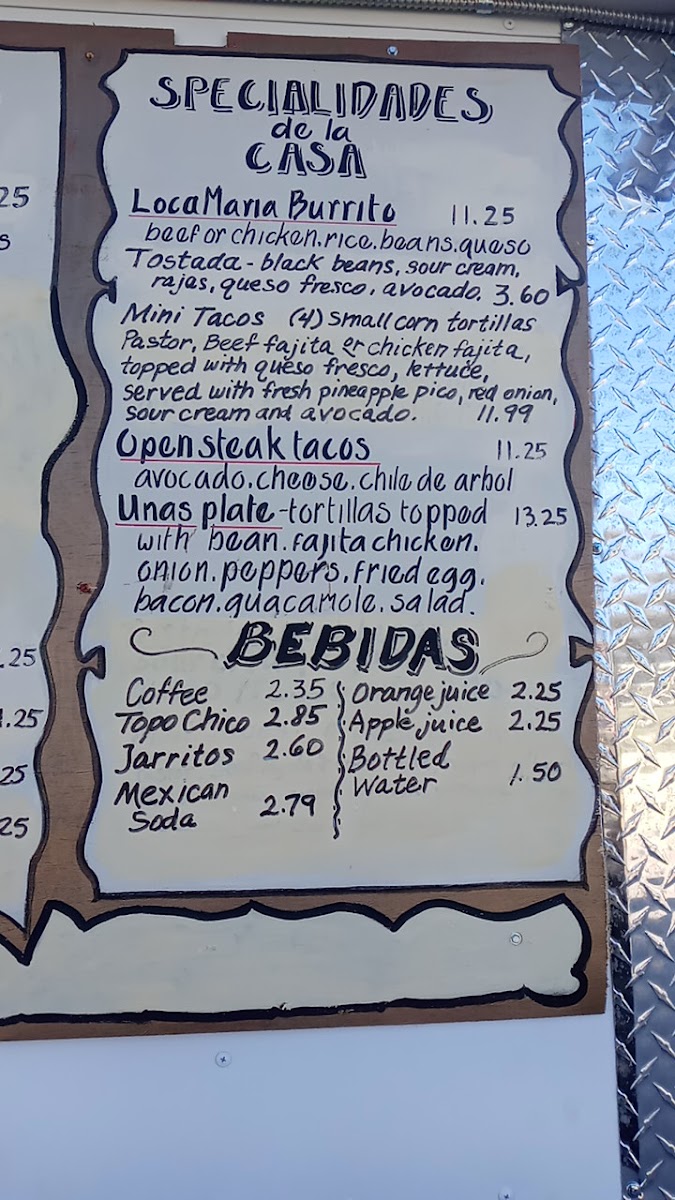 SPECIALIDADES
de la
CASA
LocaMaria Burrito 11.25
beef or chicken.rice.beans.queso
Tostada - black beans, sour cream,
rajas, queso fresco, avocado. 3.60
Mini Tacos (4) small corn tortillas
Pastor, Beef fajita or chicken fajita,
topped with queso fresco, lettuce,
served with fresh pineapple pico, red onion,
sour cream and avocado. 11.99
Open steak tacos 11.25
avocado.cheese.chile de arbol
Unas plate-tortillas topped 13.25
with bean.fajita chicken.
onion.peppers.fried egg.
bacon.guacamole.salad.
BEBIDAS
Coffee 2.35
Topo Chico 2.85
Jarritos 2.60
Mexican
Soda 2.79
Orange juice 2.25
Apple juice 2.25
Bottled
Water 1.50
25
s
.25
.25
25
25